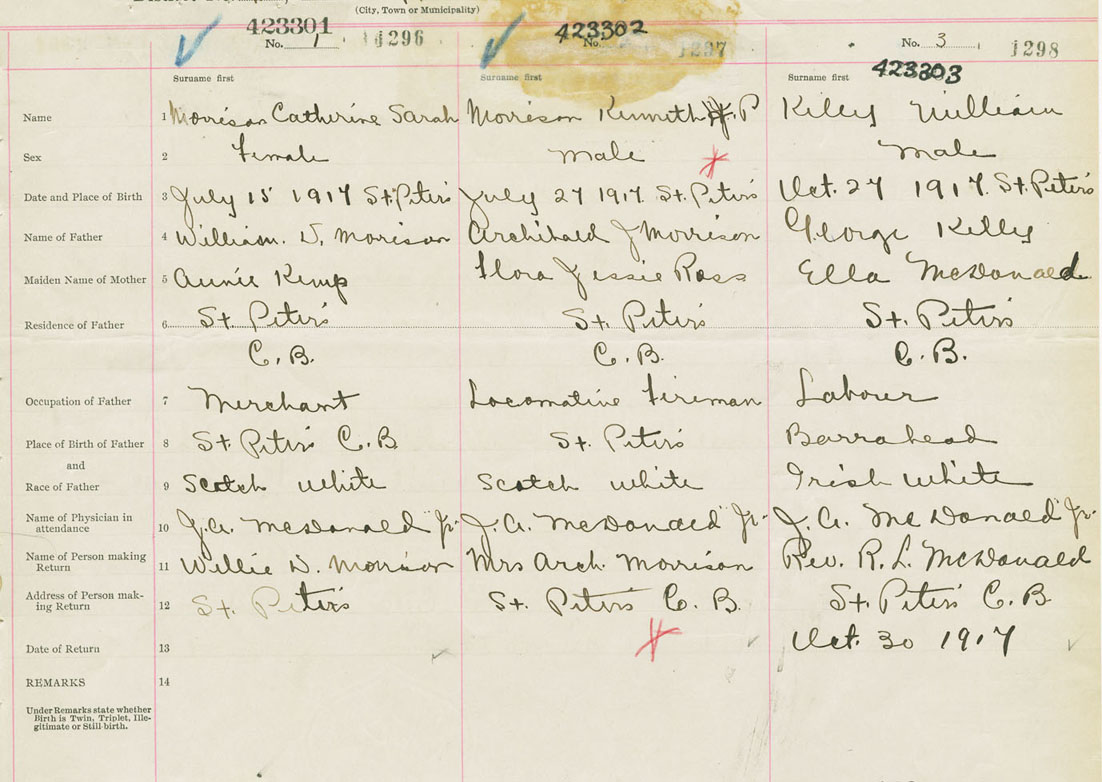 (City, Town or Municipality)
423301 423302
No. 1 1296 No. 1297 No. 3 1298
423303
Surname first Surname first Surname first
Name 1 Morrison Catherine Sarah Morrison Kenneth J. P Killey William
Sex 2 Female Male Male
Date and Place of Birth 3 July 15 1917 St. Peter's July 27 1917. St. Peter's Oct. 27 1917. St Peter's
Name of Father 4 William. D. Morrison Archibald J Morrison George Killey
Maiden Name of Mother 5 Annie Kemp Flora Jessie Ross Ella McDonald
Residence of Father 6 St. Peter's St. Peter's St. Peter's
C. B. C. B. C. B.
Occupation of Father 7 Merchant Locomotive Fireman Labourer
Place of Birth of Father 8 St. Peter's C. B St. Peter's Barrahead
and
Race of Father 9 Scotch white Scotch white Irish white
Name of Physician in
attendance 10 J. A. McDonald Jr. J. A. McDonald Jr. J. A. McDonald Jr.
Name of Person making
Return 11 Willie D. Morrison Mrs Arch. Morrison Rev. R. L. McDonald
Address of Person mak-
ing Return 12 St. Peter's St. Peter's C. B. St. Peter's C. B.
Date of Return 13 Oct. 30 1917
REMARKS 14
Under Remarks state whether
Birth is Twin, Triplet, Ille-
gitimate or Still-birth.